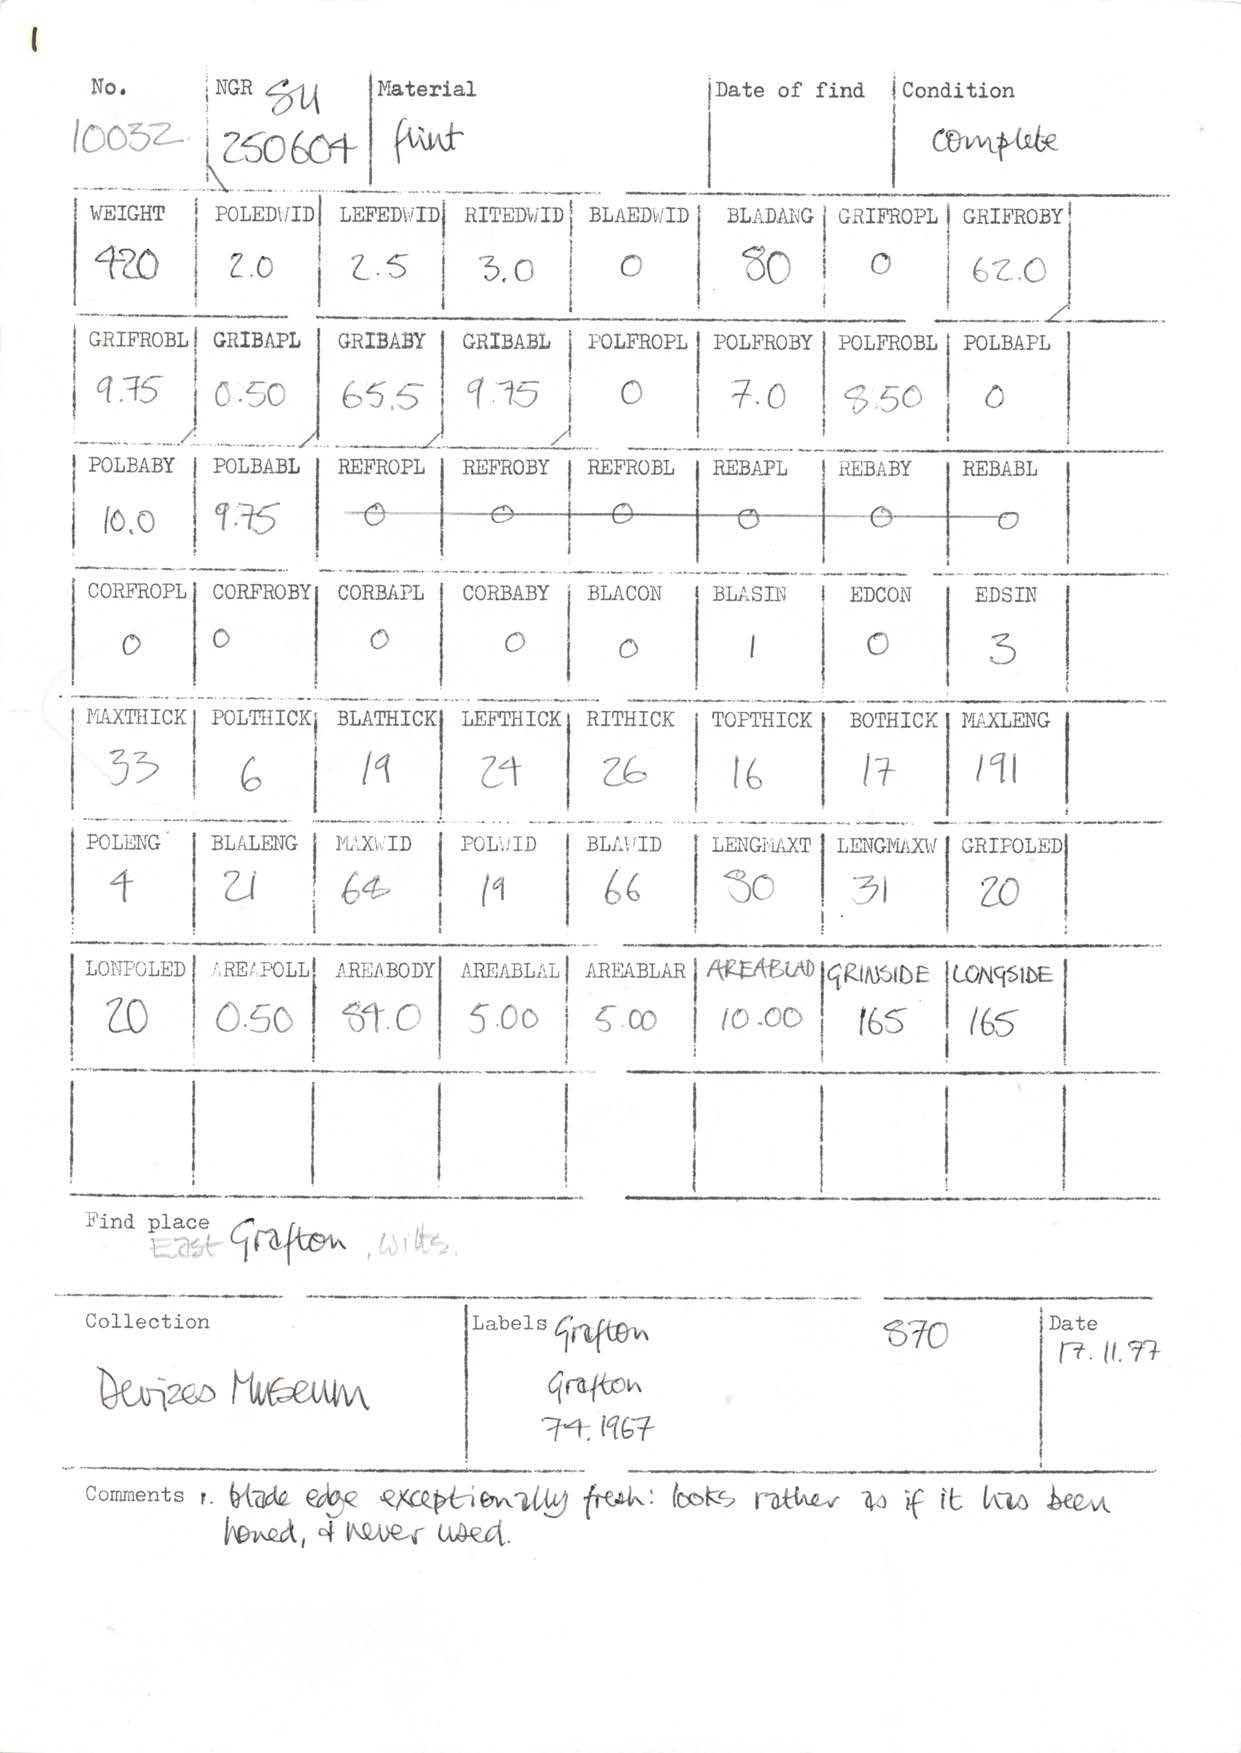 1
No. NGR SU Material Date of find Condition
10032 250604 flint complete
WEIGHT POLEDWID LEFEDWID RITEDWID BLAEDWID BLADANG GRIFROPL GRIFROBY
420 2.0 2.5 3.0 0 80 0 62.0
GRIFROBL GRIBAPL GRIBABY GRIBABL POLFROPL POLFROBY POLFROBL POLBAPL
9.75 0.50 65.5 9.75 0 7.0 8.50 0
POLBABY POLBABL REFROPL REFROBY REFROBL REBAPL REBABY REBABL
10.0 9.75 0 0 0 0 0 0
CORFROPL CORFROBY CORBAPL CORBABY BLACON BLASIN EDCON EDSIN
0 0 0 0 0 1 0 3
MAXTHICK POLTHICK BLATHICK LEFTHICK RITHICK TOPTHICK BOTHICK MAXLENG
33 6 19 24 26 16 17 191
POLENG BLALENG MAXWID POLWID BLAWID LENGMAXT LENGMAXW GRIPOLED
4 21 68 19 66 80 31 20
LONPOLED AREAPOLL AREABODY AREABLAL AREABLAR AREABLAD GRINSIDE LONGSIDE
20 0.50 84.0 5.00 5.00 10.00 165 165
Find place
East Grafton, Wilts.
Collection Labels Grafton 870 Date
17.11.77
Devizes Museum Grafton
74.1967
Comments 1. blade edge exceptionally fresh: looks rather as if it has been
honed, & never used.